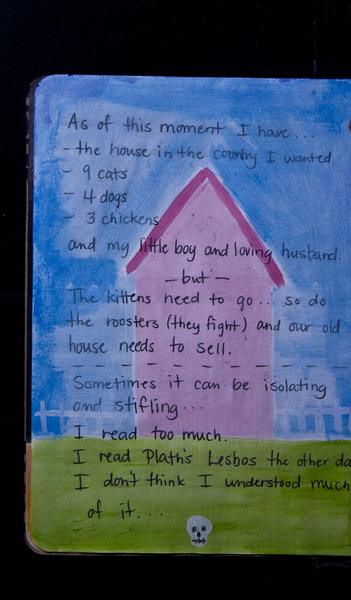 As of this moment I have...
- the house in the country I wanted
- 9 cats
- 4 dogs
- 3 chickens
and my little boy and loving husband.
- but -
The kittens need to go... so do
the roosters (they fight) and our old
house needs to sell.
Sometimes it can be isolating
and stifling...
I read too much.
I read Plath's Lesbos the other da
I don't think I understood much
of it...